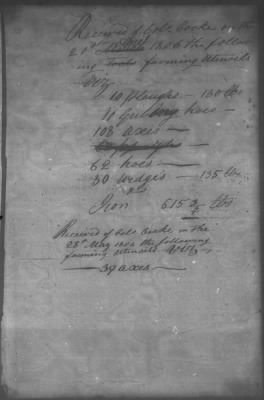 Received of Colo. Cocke on the
1806 the follow
ing farming Utensils
Viz
10 ploughs — 130 lbs
10 hoes —
108 axes —
62 hoes —
30 wedges — 135 lbs
Iron 615 lbs
Received of Colo. Cocke on the
28th May 1806 the following
farming utensils Viz
— 39 axes —